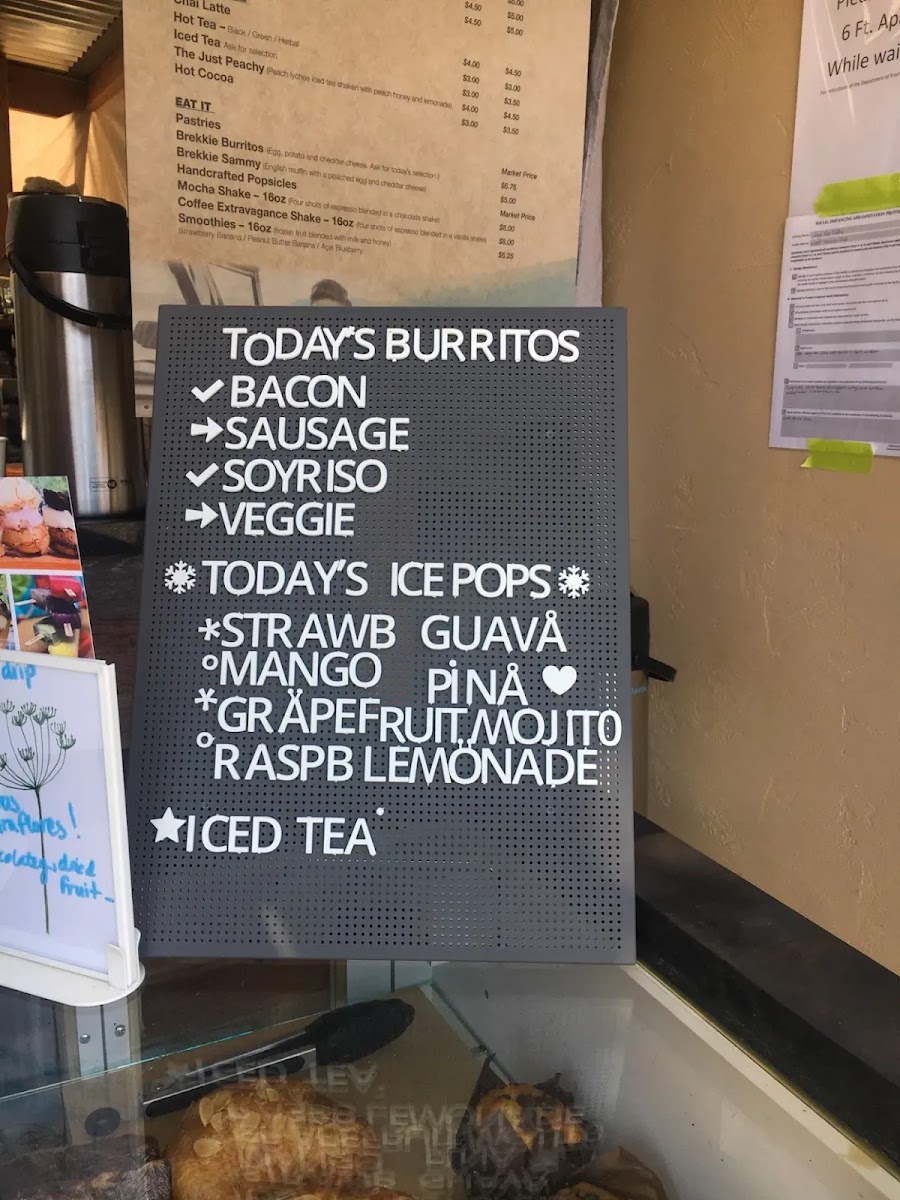 Chai Latte $4.50 $5.00
Hot Tea – Black / Green / Herbal $4.50 $5.00
Iced Tea Ask for selection
The Just Peachy (Peach lychee iced tea shaken with peach honey and lemonade) $4.00 $4.50
Hot Cocoa $3.00 $3.00
$3.00 $3.50
$4.00 $4.50
$3.00 $3.50
EAT IT
Pastries Market Price
Brekkie Burritos (Egg, potato and cheddar cheese. Ask for today's selection.) $5.75
Brekkie Sammy (English muffin with a poached egg and cheddar cheese) $5.00
Handcrafted Popsicles Market Price
Mocha Shake – 16oz (Four shots of espresso blended in a chocolate shake) $8.00
Coffee Extravagance Shake – 16oz (four shots of espresso blended in a vanilla shake) $8.00
Smoothies – 16oz (frozen fruit blended with milk and honey) $6.25
Strawberry Banana / Peanut Butter Banana / Açai Blueberry
6 Ft. Ap
While wai
TODAY'S BURRITOS
✓ BACON
➔ SAUSAGE
✓ SOYRISO
➔ VEGGIE
❄ TODAY'S ICE POPS ❄
*STRAWB GUAVÅ
°MANGO PINÅ ♥
*GRÄPEFRUIT MOJITO
°RASPB LEMÖNADE
★ICED TEA
drip
dried
fruit